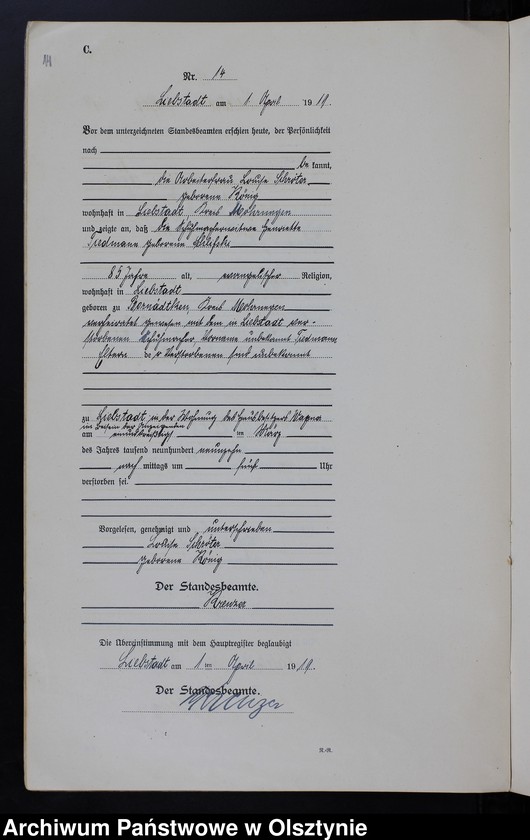 C.
14
Nr. 14
Liebstadt am 1 April 1919.
Vor dem unterzeichneten Standesbeamten erschien heute, der Persönlichkeit
nach
be kannt,
die Arbeiterfrau Louise Schröter
geborene König
wohnhaft in Liebstadt, Kreis Mohrungen
und zeigte an, daß die Schuhmacherwitwe Henriette
Tiedmann geborene
85 Jahre alt, evangelischer Religion,
wohnhaft in Liebstadt
geboren zu Bernädtken, Kreis Mohrungen
verheiratet gewesen mit dem in Liebstadt ver-
storbenen Schuhmacher, Vorname unbekannt Tiedmann
Eltern der Verstorbenen sind unbekannt
zu Liebstadt in der Wohnung des Hausbesitzers
im Beisein der Anzeigenden
am einunddreißig ten März
des Jahres tausend neunhundert neunzehn
nach mittags um fünf Uhr
verstorben sei.
Vorgelesen, genehmigt und unterschrieben
Louise Schröter
geborene König
Der Standesbeamte.
Die Übereinstimmung mit dem Hauptregister beglaubigt
Liebstadt am 1 ten April 1919.
Der Standesbeamte.
K.-R.
Archiwum Państwowe w Olsztynie